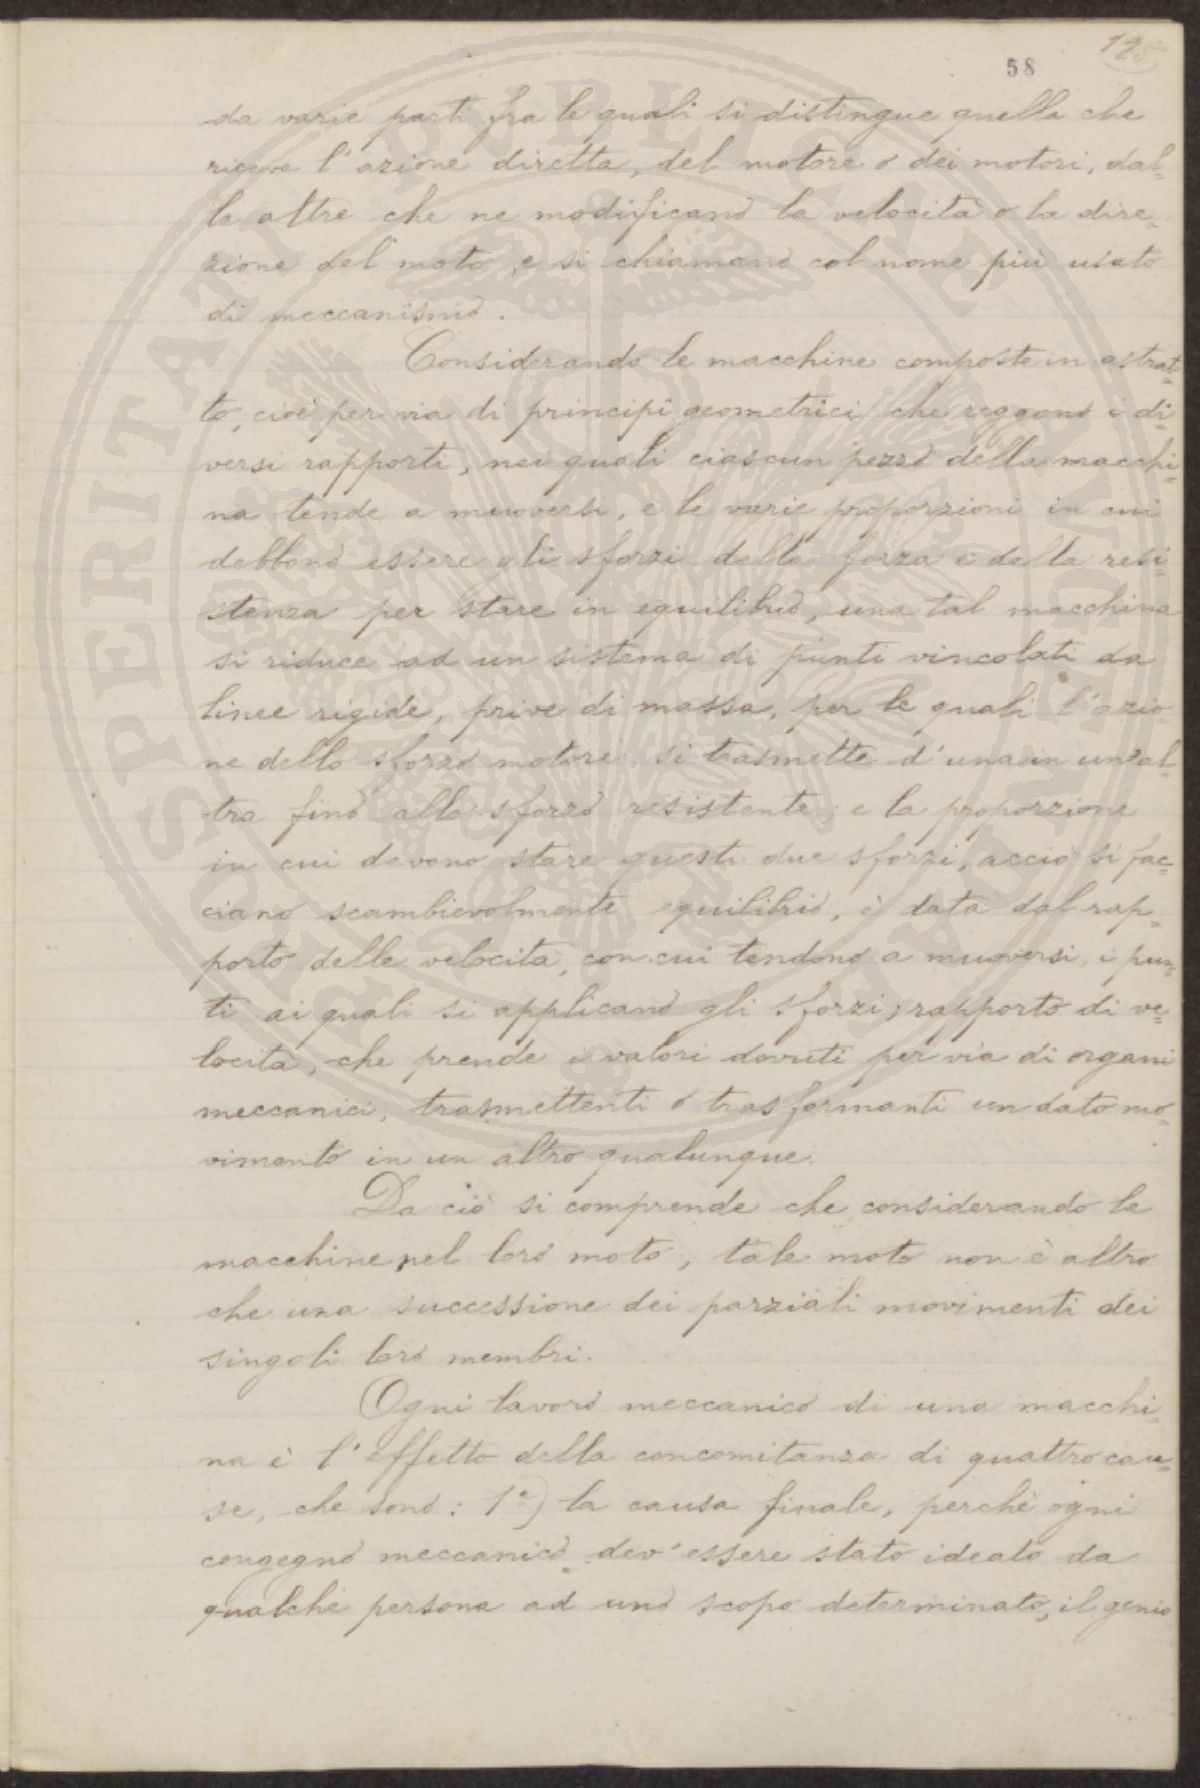 125
58
da varie parti fra le quali si distingue quella che
riceve l'azione diretta, del motore o dei motori, dal=
le altre che ne modificano la velocità o la dire=
zione del moto e si chiamano col nome più usato
di meccanismo.
Considerando le macchine composte in astrat=
to, cioè per via di principî geometrici che reggono i di=
versi rapporti, nei quali ciascun pezzo della macchi=
na tende a muoversi, e le varie proporzioni in cui
debbono essere gli sforzi della forza e della resi=
stenza per stare in equilibrio, una tal macchina
si riduce ad un sistema di punti vincolati da
linee rigide, prive di massa, per le quali l'azio=
ne dello sforzo motore si trasmette d'una in un'al=
tra fino allo sforzo resistente; e la proporzione
in cui devono stare questi due sforzi, acciò si fac=
ciano scambievolmente equilibrio, è data dal rap=
porto delle velocità, con cui tendono a muoversi, i pun=
ti ai quali si applicano gli sforzi; rapporto di ve=
locità, che prende i valori dovuti per via di organi
meccanici, trasmettenti o trasformanti un dato mo=
vimento in un altro qualunque.
Da ciò si comprende che considerando le
macchine nel loro moto, tale moto non è altro
che una successione dei parziali movimenti dei
singoli loro membri.
Ogni lavoro meccanico di una macchi=
na è l'effetto della concomitanza di quattro cau=
se, che sono: 1ª) la causa finale, perchè ogni
congegno meccanico dev'essere stato ideato da
qualche persona ad uno scopo determinato, il genio
PROSPERITATI PUBLICAE